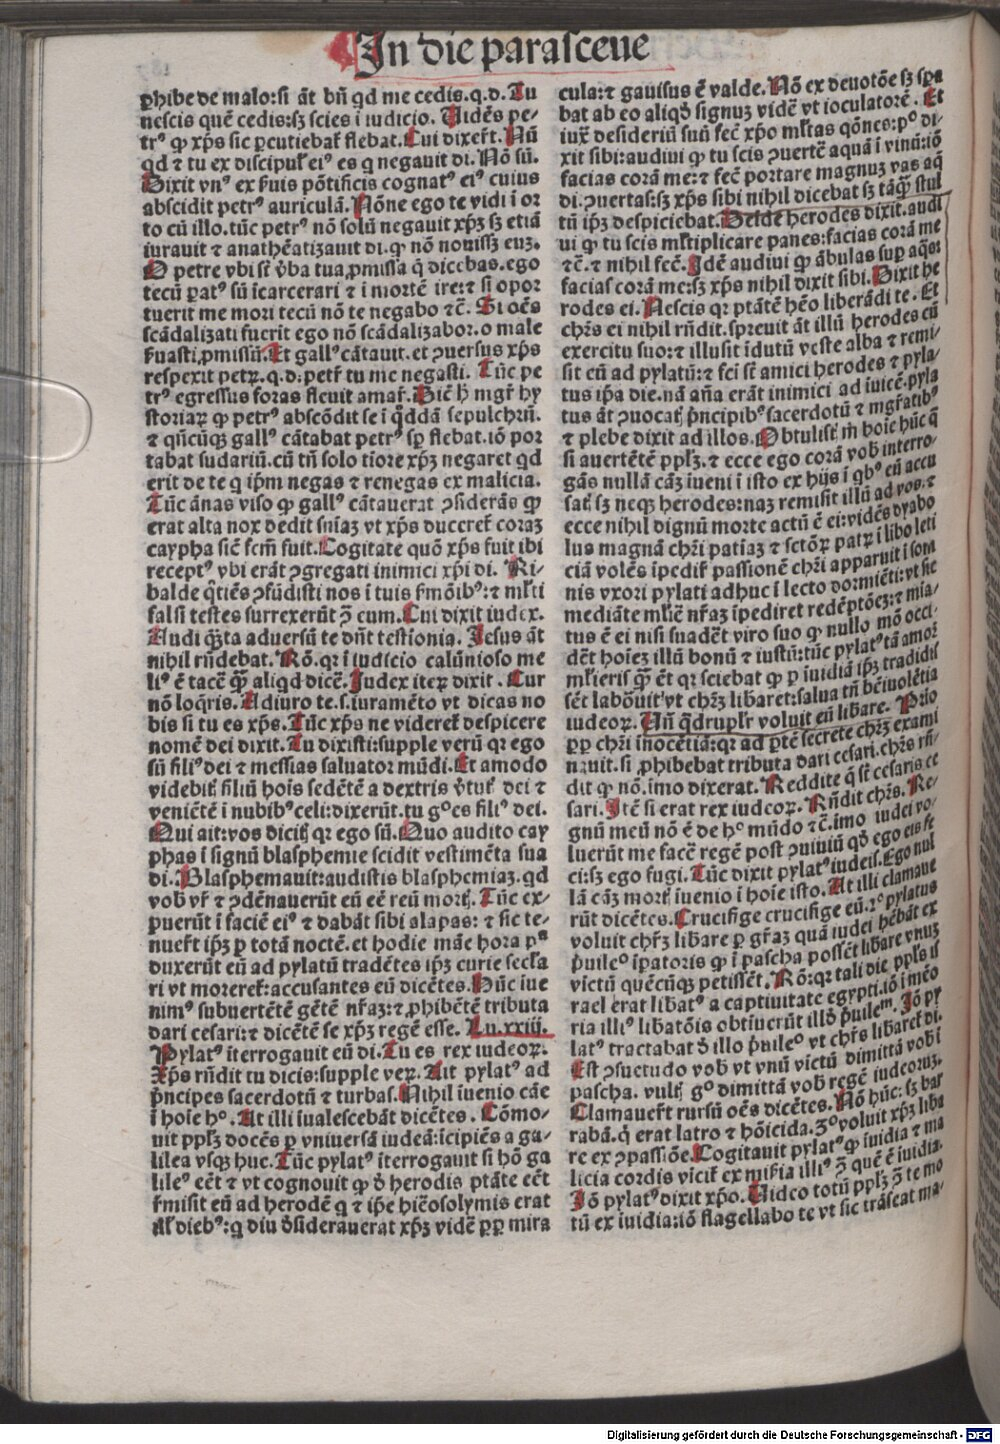 In die parasceue
ꝓhibe de malo:si āt bn̄ qd me cedis.q.d.Tu
nescis quē cedis:sꝫ scies i iudicio. Uidēs pe-
trꝰ ꝙ xp̄s sic ꝑcutiebat̉ flebat.Cui dixer̄t.Nū
qd ⁊ tu ex discipul̉ eiꝰ es q negauit di.Nō sū.
Dixit vnꝰ ex ẜuis pōtificis cognatꝰ eiꝰ cuius
abscidit petrꝰ auriculā.Nōne ego te vidi ī or
to cū illo.tūc petrꝰ nō solū negauit xp̄ꝫ sꝫ etiā
iurauit ⁊ anathēatizauit di.ꝙ nō nouissꝫ euꝫ.
O petre vbi sūt v̄ba tua ꝓmissa q̄ dicebas.ego
tecū ꝑatꝰ sū īcarcerari ⁊ i mortē ire:⁊ si opor
tuerit me mori tecū nō te negabo ⁊c̄. Si oēs
scādalizati fuerit ego nō scādalizabor.o male
ẜuasti ꝓmissū.Et gallꝰ cātauit.et ꝯuersus xp̄s
respexit petꝝ.q.d:petr̉ tu me negasti. Tūc pe
trꝰ egressus foras fleuit amar̉.Dic̄ h̄ mgr̄ hy
storiaꝝ ꝙ petrꝰ abscōdit se ī qͣddā sepulchrū.
⁊ qn̄cūqꝫ gallꝰ cātabat petrꝰ sp̄ flebat.iō por
tabat sudariū.cū tn̄ solo tīore xp̄ꝫ negaret qd
erit de te q ip̄m negas ⁊ renegas ex malicia.
Tūc ānas viso ꝙ gallꝰ cātauerat ꝯsiderās ꝙ
erat alta nox dedit sn̄iaꝫ vt xp̄s duceret̉ coraꝫ
caypha sic̄ fc̄m fuit.Cogitate quō xp̄s fuit ibi
receptꝰ vbi erāt ꝯgregati inimici xp̄i di. Ri-
balde q̄tiēs ꝯfūdisti nos i tuis ẜmōibꝰ:⁊ ml̉ti
falsi testes surrexerūt ꝯ̄ eum.Cui dixit iudex.
Audi qͣꝫta aduersū te dn̄t testīonia. Jesus āt
nihil rn̄debat. Rō.qr i iudicio calūnioso me
liꝰ ē tacē qͣꝫ aliqd dicē.Judex iteꝝ dixit.Cur
nō loqr̄is.Adiuro te.s.iuramēto vt dicas no
bis si tu es xp̄s.Tūc xp̄s ne videret̉ despicere
nomē dei dixit.Tu dixisti:supple verū qr ego
sū filiꝰ dei ⁊ messias saluator mūdi.Et amodo
videbit̉ filiū hoīs sedētē a dextris v̄tut̉ dei ⁊
veniētē i nubibꝰ celi:dixerūt.tu gͦ es filiꝰ dei.
Qui ait:vos dicit̉ qr ego sū.Quo audito cay
phas ī signū blasphemie scidit vestimēta sua
di.Blasphemauit:audistis blasphemiaꝫ.qd
vob vr̄ ⁊ ꝯdēnauerūt eū eē reū mort̉. Tūc ex-
puerūt ī faciē eiꝰ ⁊ dabāt sibi alapas: ⁊ sic te-
nuer̄t ip̄ꝫ ꝑ totā noctē.et hodie māe hora pͣ
duxerūt eū ad pylatū tradētes ip̄ꝫ curie secl̉a
ri vt moreret̉:accusantes eū dicētes.Hūc iue
nimꝰ subuertētē gētē nr̄aꝫ:⁊ ꝓhibētē tributa
dari cesari:⁊ dicētē se xp̄ꝫ regē esse. Lu.xxiij.
Pylatꝰ iterrogauit eū di.Tu es rex iudeoꝝ.
Xp̄s rn̄dit tu dicis:supple veꝝ.Ait pylatꝰ ad
p̄ncipes sacerdotū ⁊ turbas.Nihil iuenio cāe
ī hoīe hͦ. At illi iualescebāt dicētes. Cōmo-
uit ppl̄ꝫ docēs ꝑ vniuersā iudeā:icipiēs a ga-
lilea vsqꝫ huc.Tūc pylatꝰ iterrogauit si hō ga
lileꝰ eēt ⁊ vt cognouit ꝙ d̄ herodis ptāte eēt
ẜmisit eū ad herodē q ⁊ ip̄e hic̄osolymis erat
ill̉ diebꝰ:q diu d̄siderauerat xp̄ꝫ vidē ꝓꝑ mira
cula:⁊ gauisus ē valde.Nō ex deuotōe sꝫ spa
bat ab eo aliqd̄ signuꝫ vidē vt ioculatorē. Et
iux̄ desideriū suū fec̄ xp̄o ml̉tas qōnes:pͦ di-
xit sibi:audiui ꝙ tu scis ꝯuertē aquā ī vinū:iō
facias corā me:⁊ fec̄ portare magnuꝫ vas aq̄
di.ꝯuertas:sꝫ xp̄s sibi nihil dicebat sꝫ tāqͣꝫ stul
tū ip̄ꝫ despiciebat.Deīde herodes dixit.audi
ui ꝙ tu scis ml̉tiplicare panes:facias corā me
⁊c̄.⁊ nihil fec̄.Idē audiui ꝙ ābulas suꝑ aqͣs:
facias corā me:sꝫ xp̄s nihil dixit sibi.Dixit he
rodes ei.Nescis qr ptātē hēo liberādi te. Et
chr̄s ei nihil rn̄dit.spreuit āt illū herodes cū
exercitu suo:⁊ illusit īdutū veste alba ⁊ remi-
sit eū ad pylatū:⁊ fc̄i sūt amici herodes ⁊ pyla-
tus ip̄a die.nā āna erāt inimici ad iuicē.pyla
tus āt ꝯuocat̉ p̄ncipibꝰ sacerdotū ⁊ mgr̄atibꝰ
⁊ plebe dixit ad illos.Obtulist̉ m̄ hoīe hūc q̄
si auertētē ppl̄ꝫ.⁊ ecce ego corā vob interro
gās nullā cāꝫ iueni i isto ex hijs ī qbꝰ eū accu
sat̉ sꝫ neqꝫ herodes:naꝫ remisit illū ad vos.⁊
ecce nihil dignū morte actū ē ei:vidēs dyabo
lus magnā chr̄i patiaꝫ ⁊ sctōꝝ patꝝ ī libo leti
ciā volēs ipedir̉ passionē chr̄i apparuit ī som
nis vxori pylati adhuc ī lecto dormiēti:vt sic
mediāte ml̉ic̄ nr̄aꝫ ipediret redēptōeꝫ:⁊ mīa-
tus ē ei nisi suadēt viro suo ꝙ nullo mō occi
dēt hoīeꝫ illū bonū ⁊ iustū:tūc pylatꝰ tā amor̉
ml̉ieris qͣꝫ ēt qr sciebat ꝙ ꝑ iuidiā ip̄ꝫ tradidis
sēt labōuit̉ vt chr̄ꝫ libaret:salua tn̄ bēiuolētia
iudeoꝝ. Un̄ qͣdruplr̄ voluit eū libare. Prīo
ꝓꝑ chr̄i īnocētiā:qr ad ꝑtē secrete chr̄ꝫ exami
nauit.si ꝓhibebat tributa dari cesari.chr̄s rn̄-
dit ꝙ nō.īmo dixerat.Reddite q̄ sūt cesaris ce
sari.Itē si erat rex iudeoꝝ. Rn̄dit chr̄s. Re-
gnū meū nō ē de hͦ mūdo ⁊c̄.īmo iudei vo-
luerūt me facē regē post ꝯuiuiū qd̄ ego eis fe
ci:sꝫ ego fugi.Tūc dixit pylatꝰ iudeis.Ego nul
lā cāꝫ mort̉ iuenio i hoīe isto.At illi clamaue
rūt dicētes.Crucifige crucifige eū.2ͦ pylatus
voluit chr̄ꝫ libare ꝑ gr̄aꝫ quā iudei hēbāt ex
p̄uileͦ īpatoris ꝙ ī pascha possēt libare vnuꝫ
victū quēcūqꝫ petissēt.Rō:qr tali die ppl̄s is
rael erat libatꝰ a captiuitate egypti.iō i mēo
ria illiꝰ libatōis obtiuerūt illd̄ p̄uileᵐ. Iō py
latꝰ tractabat d̄ illo p̄uileͦ vt chr̄s libaret̉ di.
Est ꝯsuetudo vob vt vnū victū dimittā vobi
pascha. vult̉ gͦ dimittā vob regē iudeoruꝫ.
Clamauer̄t rursū oēs dicētes.Nō hūc:sꝫ bar
rabā.q̄ erat latro ⁊ hōicida.3ͦ voluit xp̄ꝫ liba
re ex ꝯpassiōe.Cogitauit pylatꝰ ꝙ iuidia ⁊ ma
licia cordis vicit̉ ex miẜia illiꝰ ꝯ̄ quē ē iuidia.
Iō pylatꝰ dixit xp̄o. Uideo totū ppl̄ꝫ ꝯ̄ te mo
tū ex iuidia:iō flagellabo te vt sic trāseat ma-
Digitalisierung gefördert durch die Deutsche Forschungsgemeinschaft - DFG